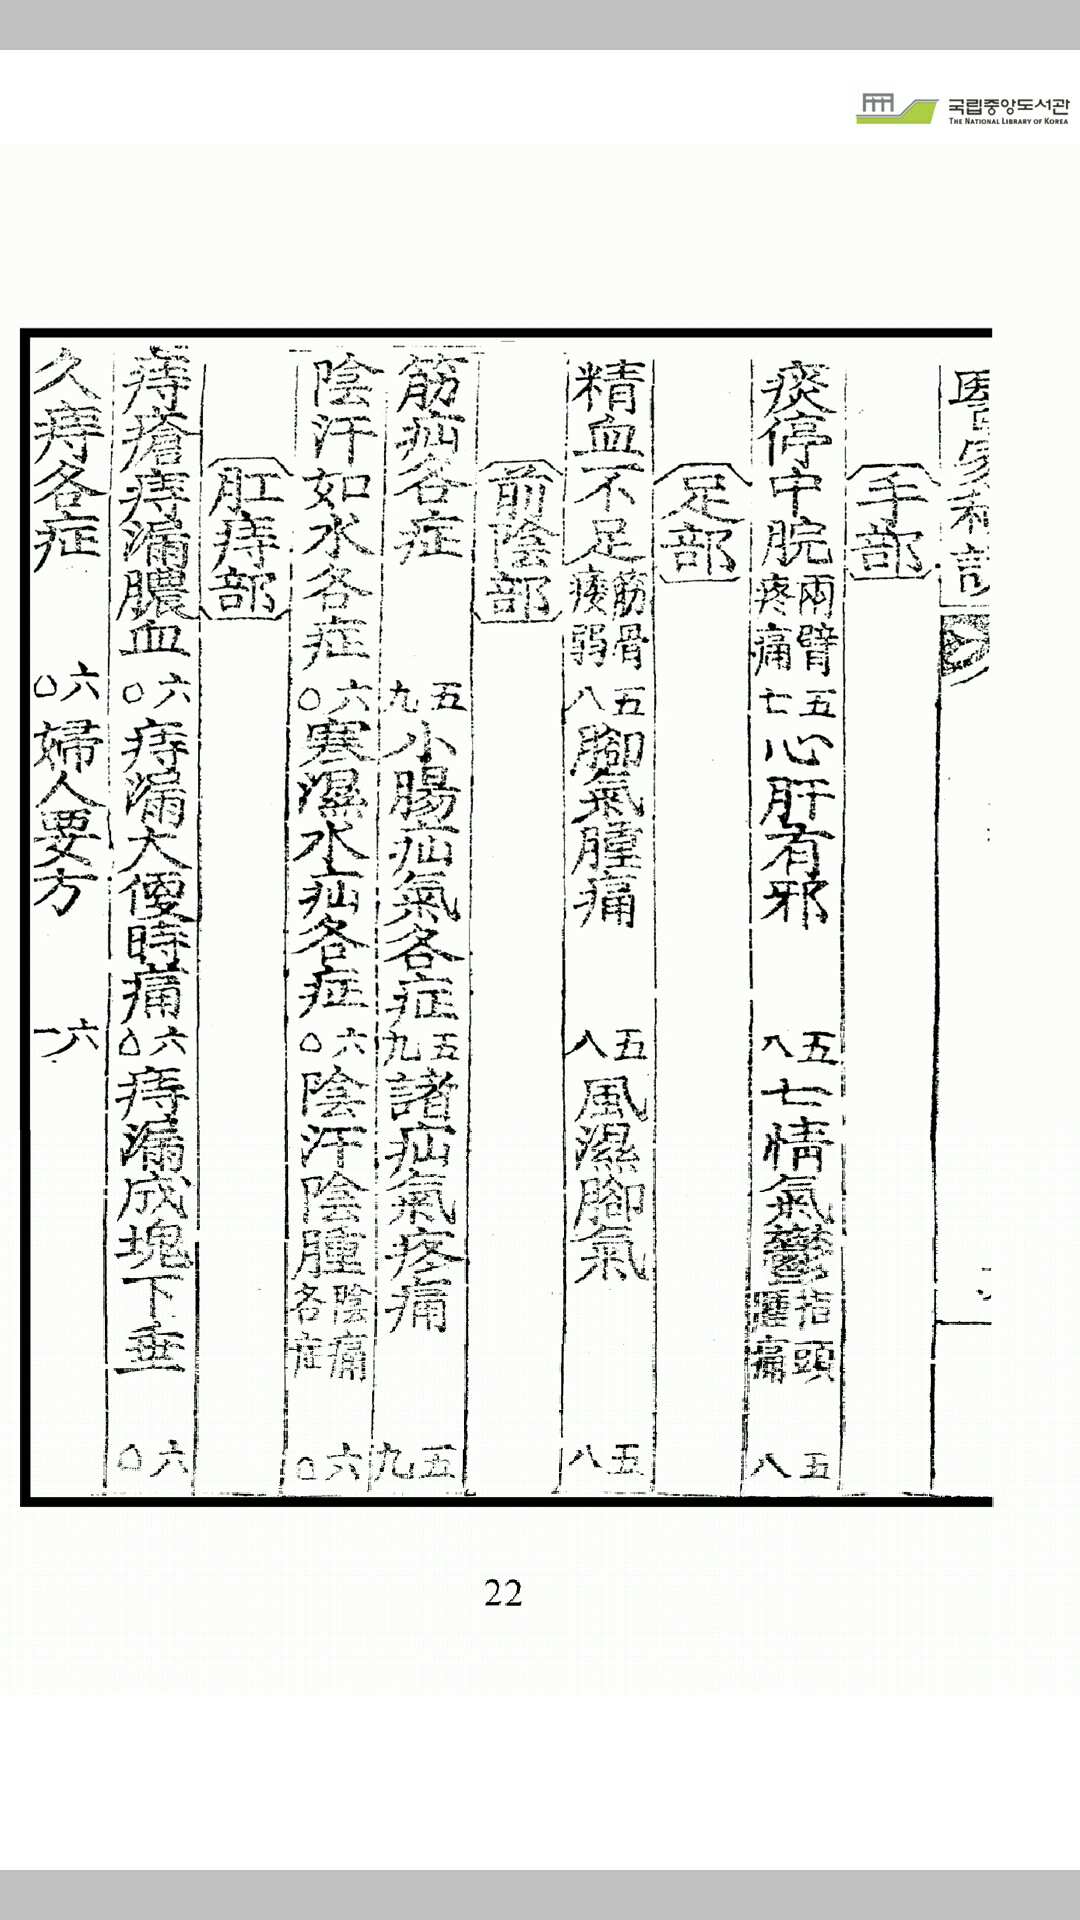 국립중앙도서관
THE NATIONAL LIBRARY OF KOREA
醫家秘訣
手部
痰停中脘兩臂疼痛五七心肝有邪五八七情氣鬱指頭腫痛五八
足部
精血不足筋骨痿弱五八腳氣腫痛五八風濕腳氣五八
前陰部
筋疝各症五九小腸疝氣各症五九諸疝氣疼痛五九
陰汗如水各症六○寒濕水疝各症六○陰汗陰腫陰痛各症六○
肛痔部
痔瘡痔漏膿血六○痔漏大便時痛六○痔漏成塊下垂六○
久痔各症六○婦人要方六一
22